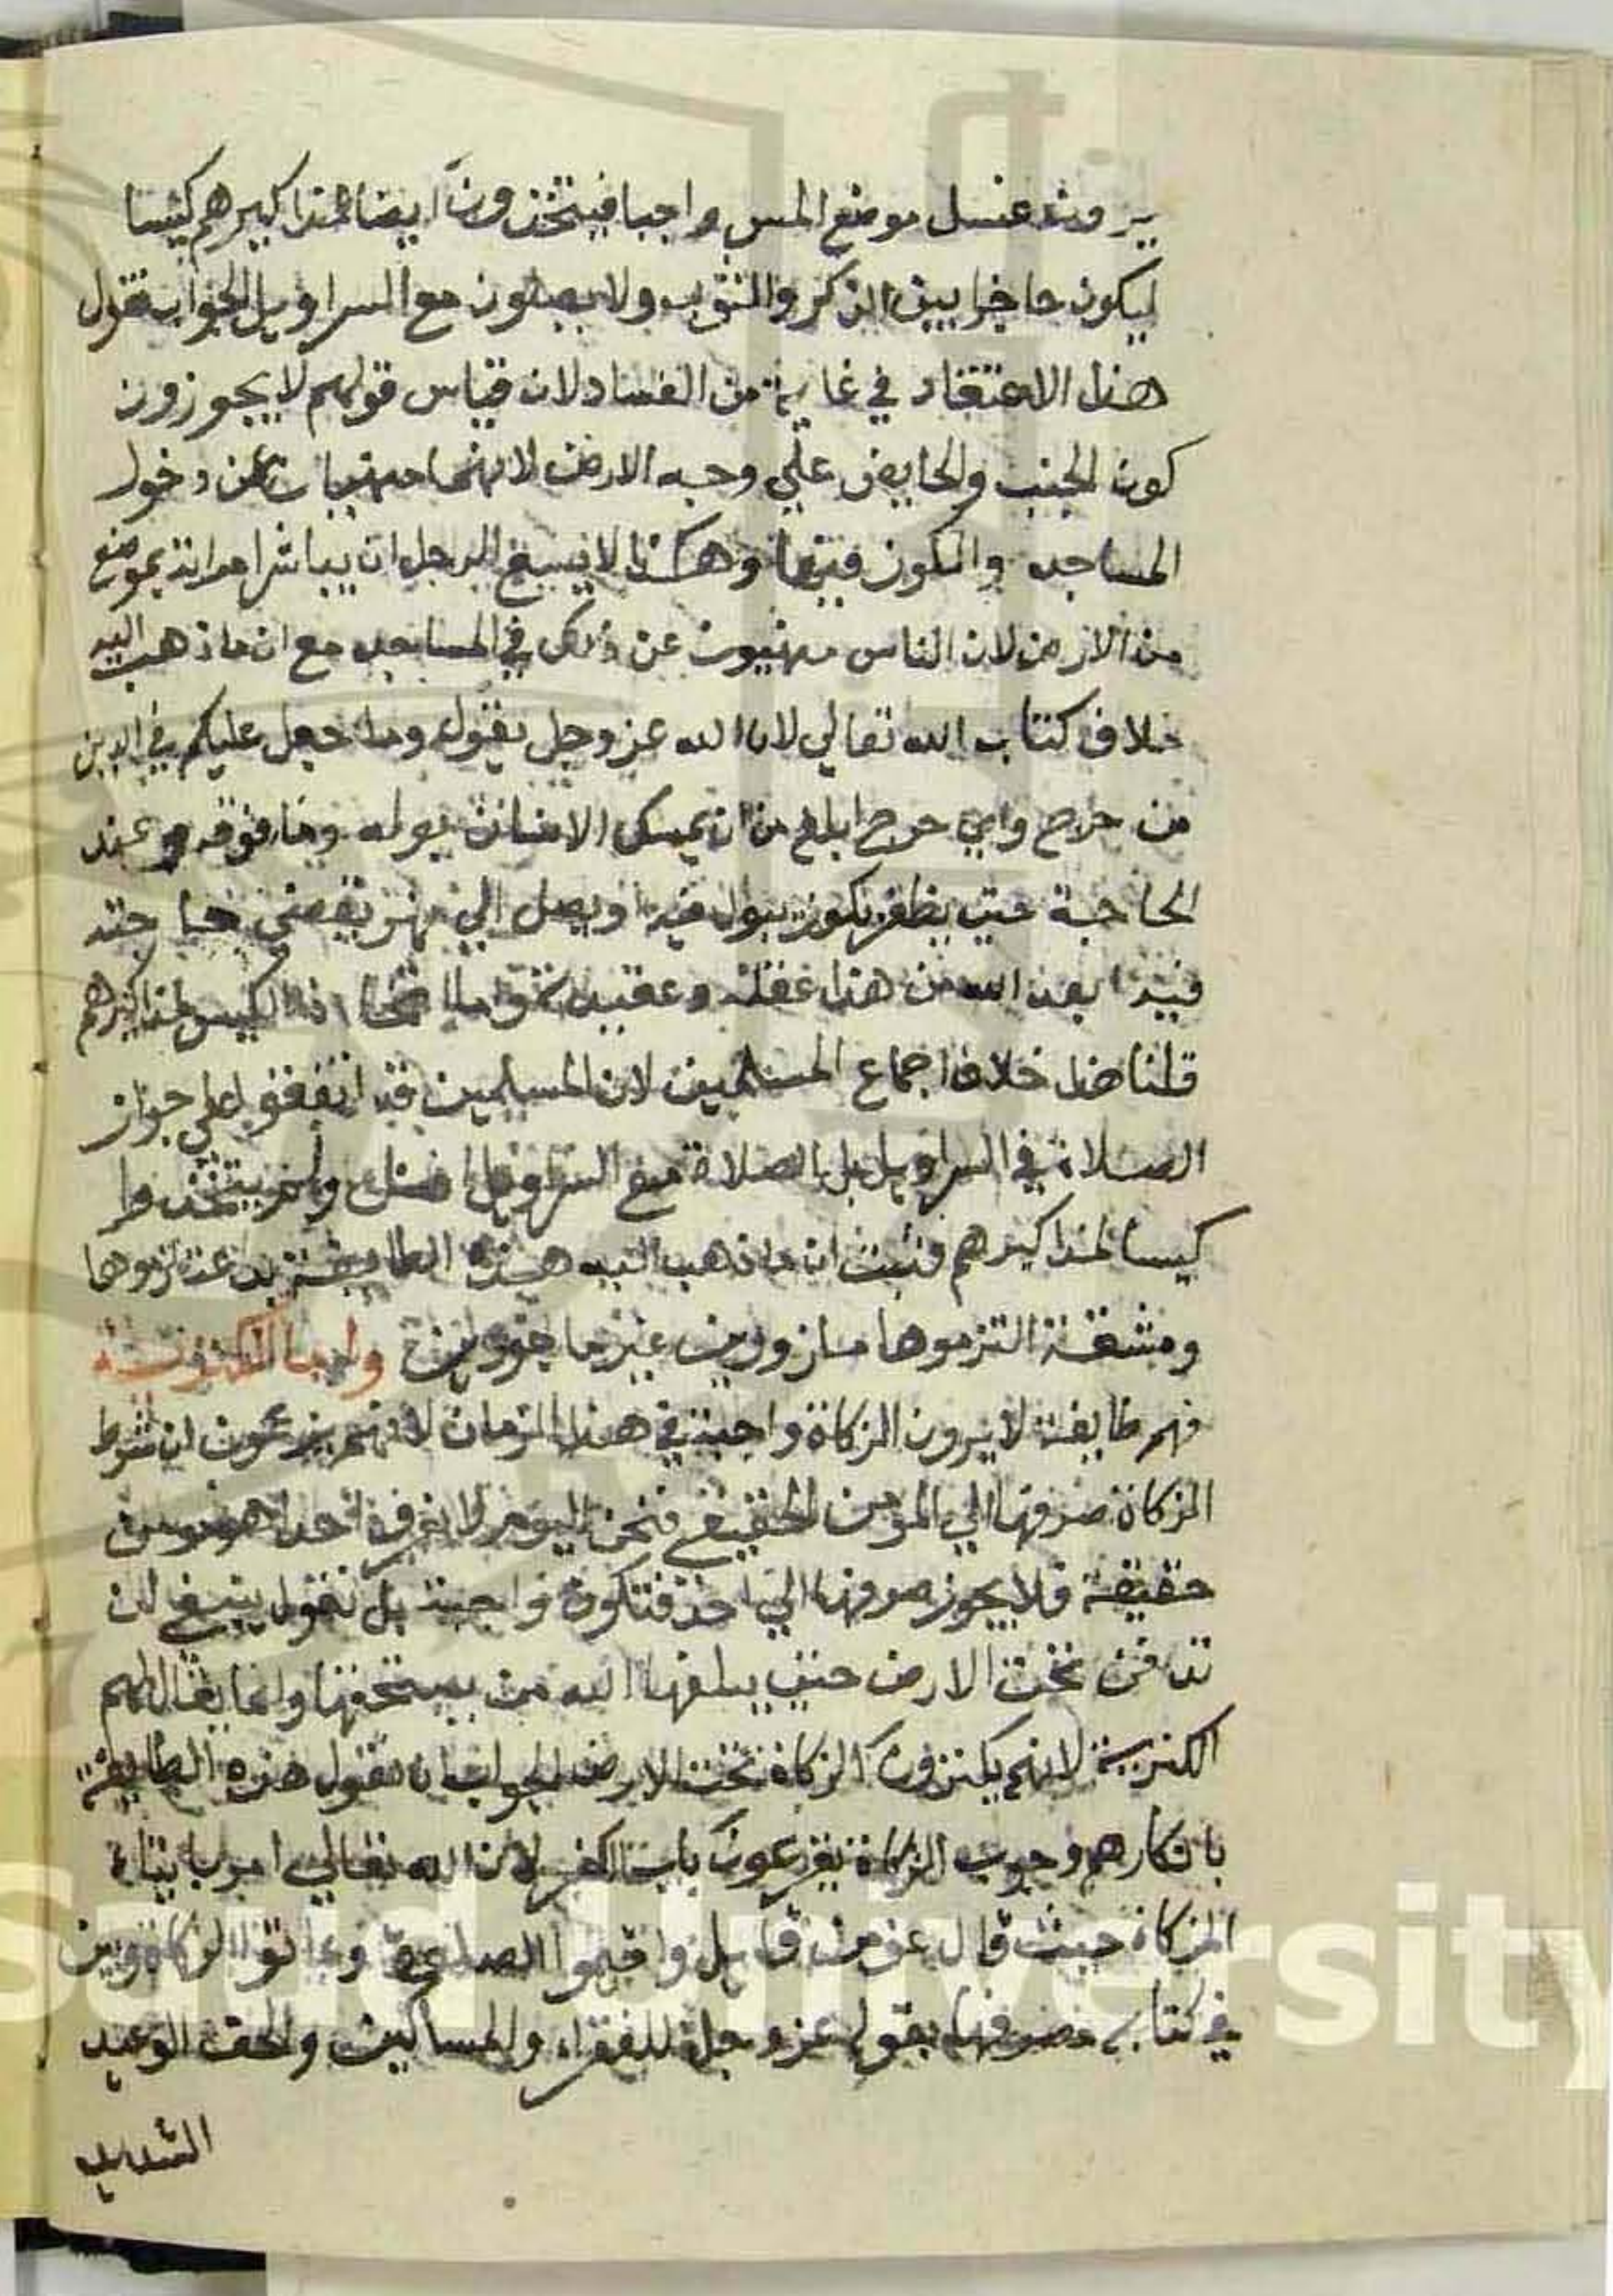 يرون غسل موضع المس واجبا فيتخذون ايضا لمذاكيرهم كيسا
ليكون حاجزا بين الذكر والثوب ولا يصلون مع السراويل الجواب نقول
هذا الاعتقاد في غاية من الفساد لان قياس قولهم لا يجوزون
كون الجنب والحايض علي وجه الارض لانهما منهيان عن دخول
المساجد والكون فيها وهكذا لا يسع الرجل ان يباشر امراته بموضع
من الارض لان الناس منهيون عن ذلك في المساجد مع ان ما ذهب اليه
خلاف كتاب الله تعالي لان الله عز وجل يقول وما جعل عليكم في الدين
من حرج واي حرج ابلغ من ان يمسك الانسان بوله وما فوقه عند
الحاجة حتي يظفر بكوز يبول فيه او يصل الي نهر يقضي حاجته
فيه ابعد الله من هذا عقله وعقيدته واما اتخاذ الكيس لمذاكيرهم
قلنا هذا خلاف اجماع المسلمين لان المسلمين قد اتفقوا علي جواز
الصلاة في السراويل بل الصلاة مع السراويل افضل ولم يتخذوا
كيسا لمذاكيرهم فثبت ان ما ذهب اليه هذه الطايفة بدعة لزموها
ومشقة التزموها مازورين غير ماجورين واما الكنزية
فهم طايفة لا يرون الزكاة واجبة في هذا الزمان لانهم يزعمون ان شرط
الزكاة صرفها الي المومن الحقيقي فنحن اليوم لا نعرف احدا هو مومن
حقيقة فلا يجوز صرفها الي احد فتكون واجبة بل نقول ينبغي ان
تدفن تحت الارض حتي يبلغها الله من يستحقها وانما يقال لهم
الكنزية لانهم يكنزون الزكاة تحت الارض الجواب ان نقول هذه الطايفة
بانكارهم وجوب الزكاة يقرعون باب الكفر لان الله تعالي امر بايتاء
الزكاة حيث قال عز من قايل واقيموا الصلوة وءاتوا الزكاة وبين
في كتابه مصرفها بقوله عز وجل للفقراء والمساكين والحق الوعيد
الشديد
Saud University